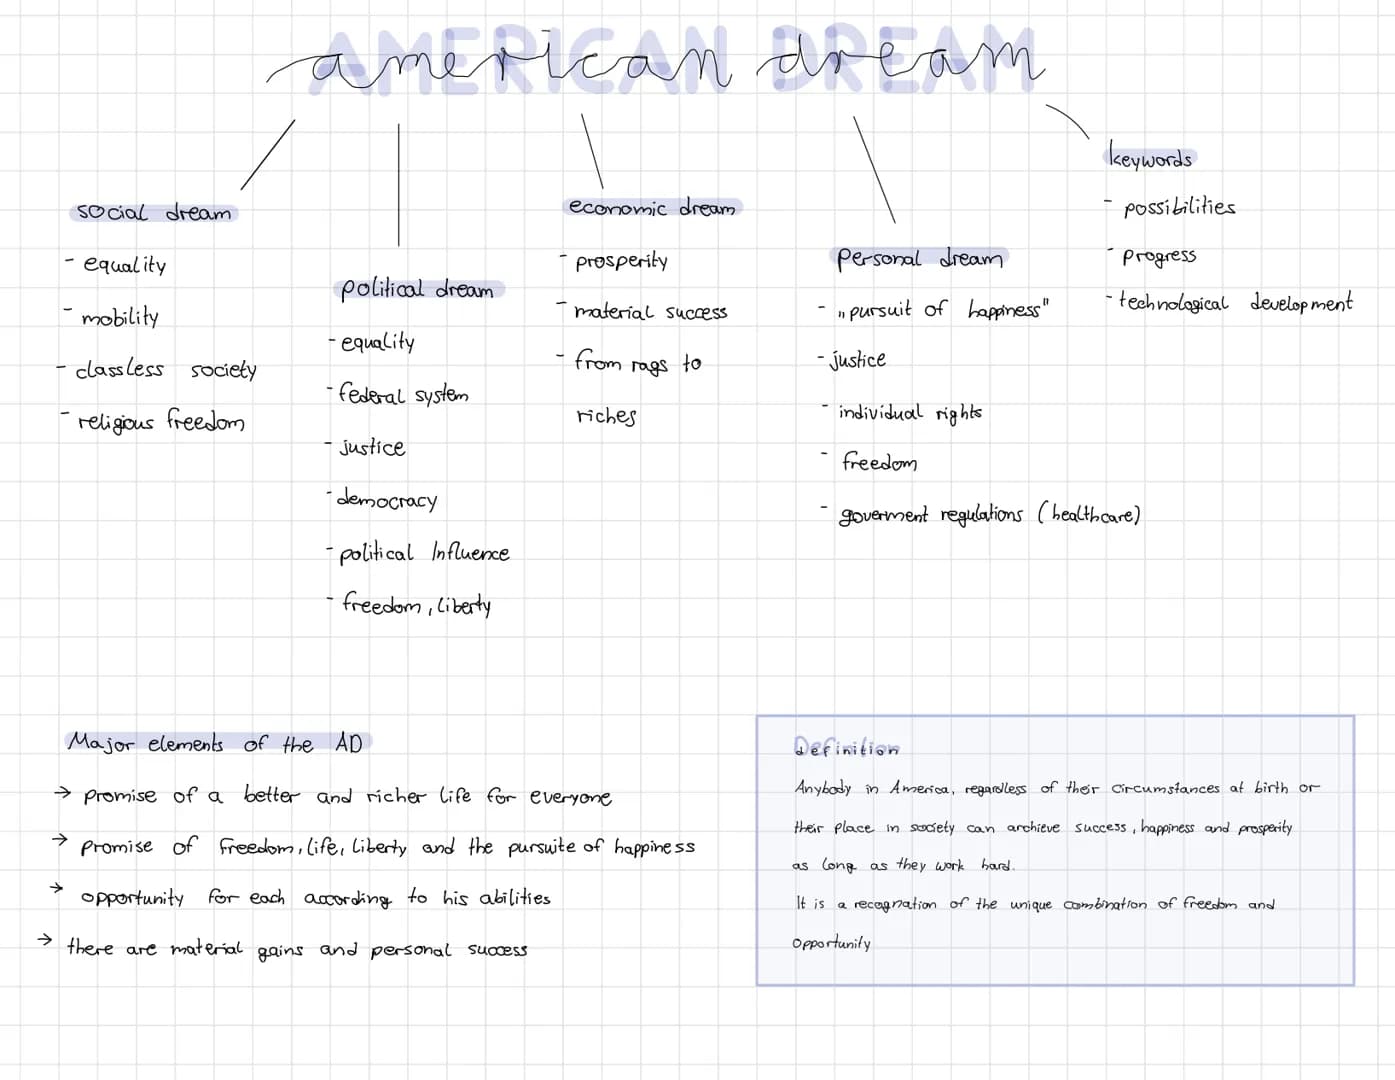 american dream
social dream
- equality
- mobility
- classless society
- religious freedom
political dream
- equality
- federal system
- justice
- democracy
- political Influence
- freedom, liberty
economic dream
- prosperity
- material success
- from rags to
riches
Personal dream
- „pursuit of happiness"
- justice
- individual rights
- freedom
- goverment regulations (healthcare)
keywords
- possibilities
- progress
- technological development
Major elements of the AD
→ promise of a better and richer life for everyone
→ promise of freedom, life, liberty and the pursuite of happiness
→ opportunity for each according to his abilities
→ there are material gains and personal success
Definition
Anybody in America, regardless of their circumstances at birth or
their place in society can archieve success, happiness and prosperity
as long as they work hard.
It is a recognation of the unique combination of freedom and
opportunity